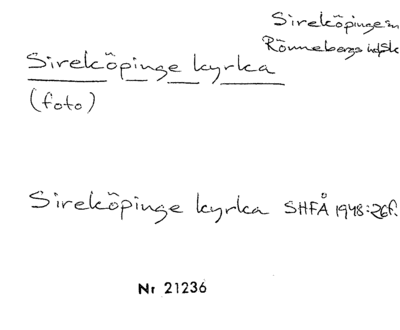 Sireköpinge sn
Rönnebergs hd, Sk
Sireköpinge kyrka
(foto)
Sireköpinge kyrka SHFÅ 1948:26f.
Nr 21236